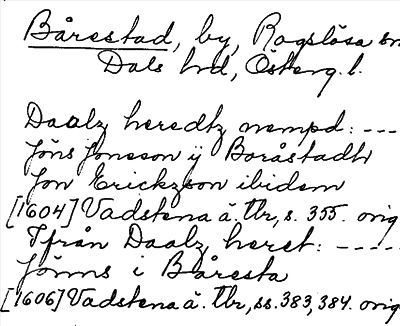 Bårestad, by, Rogslösa sn
Dals hrd, Österg. l.
Daalz heredtz nempd: ---
Jöns Jonsson ÿ Boråstadh
Jon Erickzson ibidem
[1604] Vadstena ä. Tbr, s. 355. orig
Ifrån Daalz heret: -----
Jönns i Båresta
[1606] Vadstena ä. Tbr, ss. 383, 384. orig